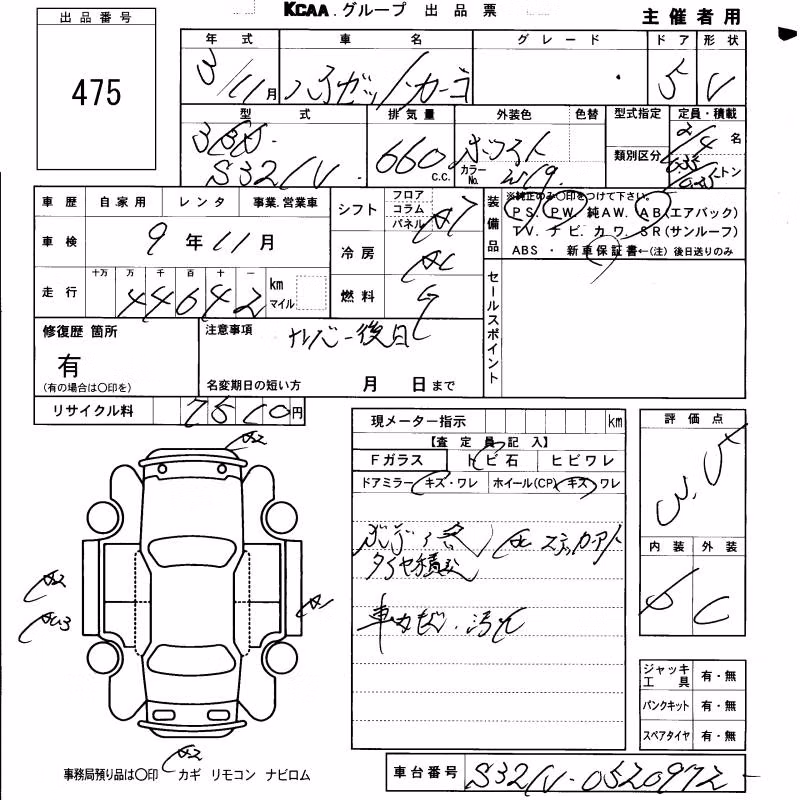 KCAA グループ 出品票
主催者用
出品番号
475
年式 車名 グレード ドア 形状
3/11月 ハイゼットカーゴ 5 V
型式 排気量 外装色 色替 型式指定 定員・積載
類別区分
3BD-
S321V 660 c.c. ホワイト カラーNo. W19 2/4 名
0.35/0.25 トン
車歴 自家用 レンタ 事業.営業車
車検 9年11月
走行 十万 万 千 百 十 一 km マイル
44642
シフト フロア コラム パネル
冷房 AC
燃料
装備品
※純正のみ○印をつけて下さい。
PS. PW. 純AW. AB(エアバック)
TV. ナビ. カワ. SR(サンルーフ)
ABS ・ 新車保証書←(注) 後日送りのみ
セールスポイント
修復歴 箇所
有
(有の場合は○印を)
注意事項
ナンバー後日
名変期日の短い方 月 日まで
リサイクル料 7510円
現メーター指示 km
【査定員記入】
Fガラス トビ石 ヒビワレ
ドアミラー キズ・ワレ ホイール(CP) キズ・ワレ
タイヤ積込
汚れ
評価点
3.5
内装 外装
C
A2
A2
A1
A2
ジャッキ工具 有・無
パンクキット 有・無
スペアタイヤ 有・無
事務局預り品は○印 カギ リモコン ナビロム
車台番号 S321V-0520972